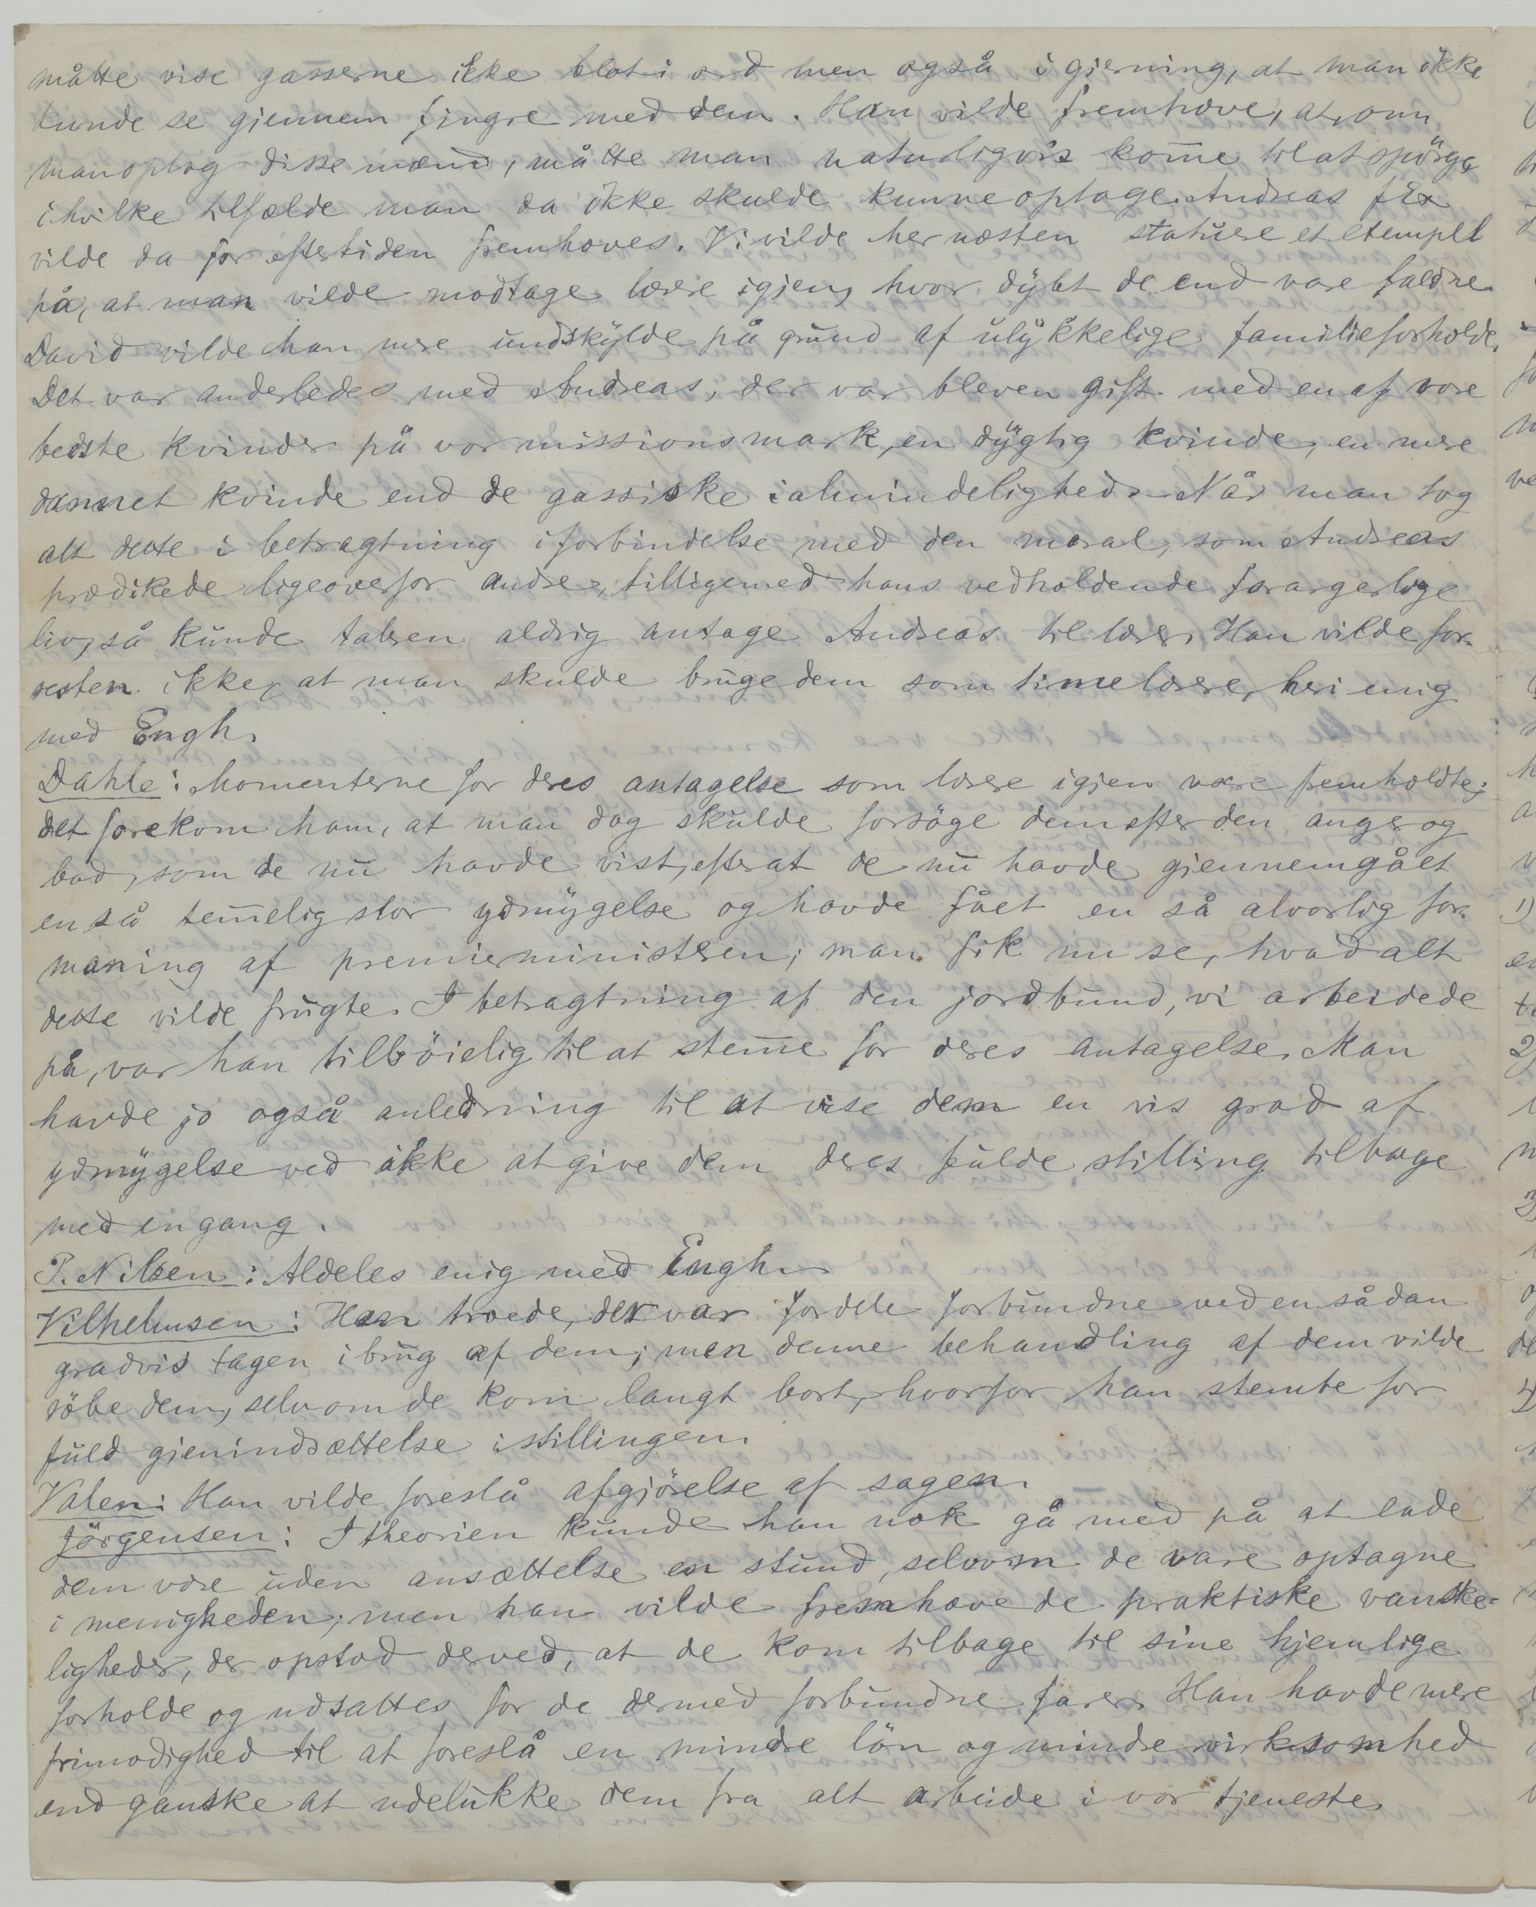 måtte vise gasserne ikke blot i ord men også i gjerning, at man ikke
kunde se gjennem fingre med dem. Han vilde fremhæve, at, om
man optog disse mænd, måtte man naturligvis kom̅e til at spörge,
i hvilke tilfælde man da ikke skulde kunne optage. Andreas f Ex
vilde da for eftertiden fremhæves. Vi vilde her næsten statuere et exempel
på, at man vilde modtage lærere igjen, hvor dybt de end vare faldne.
David vilde han mere undskylde på grund af ulykkelige familieforholde.
Det var anderledes med Andreas, der var bleven gift med en af vore
bedste kvinder på vor missionsmark, en dygtig kvinde, en mere
dannet kvinde end de gassiske i almindelighed. Når man tog
alt dette i betragtning i forbindelse med den moral, som Andreas
prædikede ligeoverfor andre, tilligemed hans vedholdende forargerlige
liv, så kunde taleren aldrig antage Andreas til lærer. Han vilde for-
resten ikke, at man skulde bruge dem som timelærere, heri enig
med Engh.
Dahle: Momenterne for deres antagelse som lærere igjen være fremholdte;
det forekom ham, at man dog skulde forsöge dem efter den anger og
bod, som de nu havde vist, efterat de nu havde gjennemgået
en så tem̅elig stor ydmygelse og havde fået en så alvorlig for-
maning af premierministeren; man fik nu se, hvad alt
dette vilde frugte. I betragtning af den jordbund, vi arbeidede
på, var han tilböielig til at stem̅e for deres antagelse. Man
havde jo også anledning til at vise dem en vis grad af
ydmygelse ved ikke at give dem deres fulde stilling tilbage
med engang.
P. Nilsen: Aldeles enig med Engh.
Vilhelmsen: Han troede, der var fordele forbundne ved en sådan
gradvis tagen i brug af dem; men denne behandling af dem vilde
röbe dem, selv om de kom langt bort, hvorfor han stemte for
fuld gjenindsættelse i stillingen.
Valen: Han vilde foreslå afgjörelse af sagen.
Jörgensen: I theorien kunde han nok gå med på at lade
dem være uden ansættelse en stund, selv om de vare optagne
i menigheden; men han vilde fremhæve de praktiske vanske-
ligheder, der opstod derved, at de kom tilbage til sine hjemlige
forholde og udsattes for de dermed forbundne farer. Han havde mere
frimodighed til at foreslå en mindre lön og mindre virksomhed
end ganske at udelukke dem fra alt arbeide i vor tjeneste.